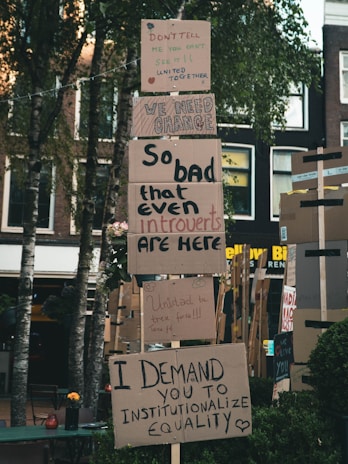 DON'T TELL
ME YOU CAN'T
SEE IT!!
UNITED
TOGETHER
WE NEED
CHANGE
So bad
that
even
introverts
ARE HERE
I DEMAND
YOU TO
INSTITUTIONALIZE
EQUALITY
Yellow Bi
REN